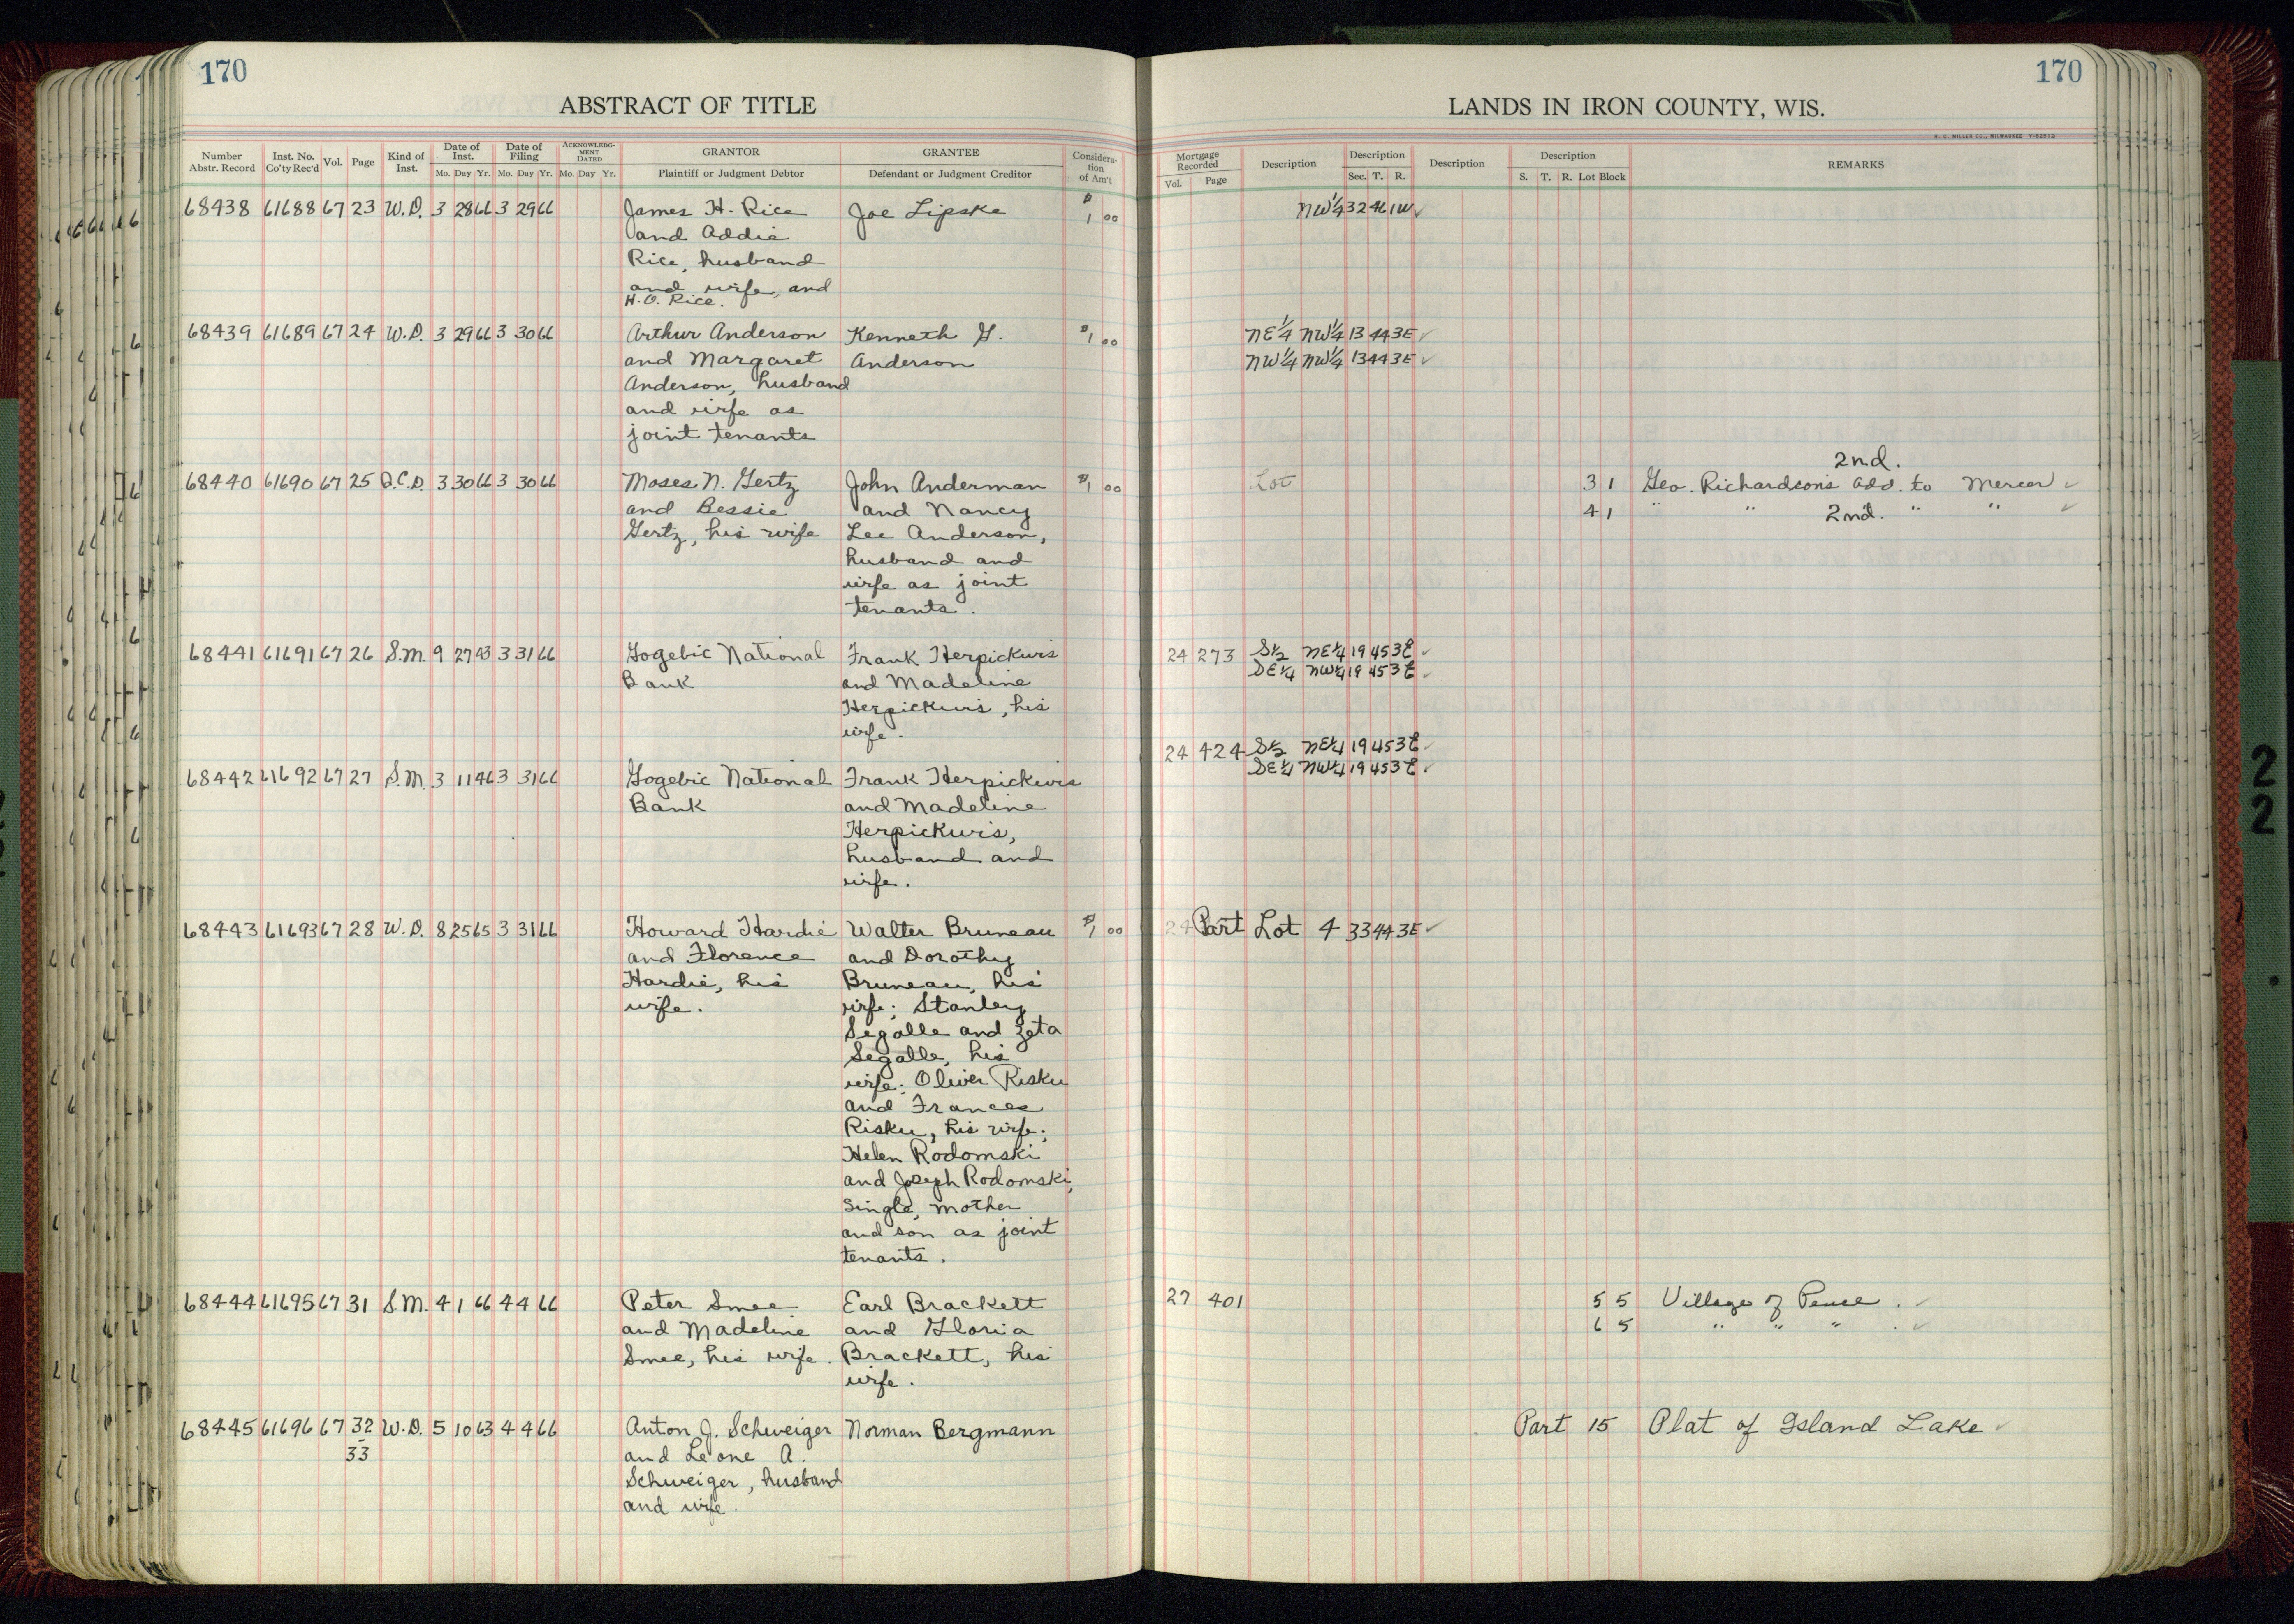 170
170
ABSTRACT OF TITLE
LANDS IN IRON COUNTY, WIS.
H. C. MILLER CO., MILWAUKEE
Number Abstr. Record
Inst. No. Co'ty Rec'd
Vol.
Page
Kind of Inst.
Date of Inst.
Mo. Day Yr.
Date of Filing
Mo. Day Yr.
ACKNOWLEDGMENT DATED
Mo. Day Yr.
GRANTOR
Plaintiff or Judgment Debtor
GRANTEE
Defendant or Judgment Creditor
Consideration of Am't
Mortgage Recorded
Vol. Page
Description
Description
Sec. T. R.
Description
Description
S. T. R. Lot Block
REMARKS
68438 61688 67 23 W.D. 3 28 66 3 29 66 James H. Rice Joe Lipske $1 00 NW¼ 32 41 1W ✓
and Addie
Rice, husband
and wife, and
H.O. Rice.
68439 61689 67 24 W.D. 3 29 66 3 30 66 Arthur Anderson Kenneth G. $1 00 NE¼ NW¼ 13 44 3E ✓
and Margaret Anderson NW¼ NW¼ 13 44 3E ✓
Anderson, husband
and wife as
joint tenants
2nd.
68440 61690 67 25 Q.C.D. 3 30 66 3 30 66 Moses N. Gertz John Anderman $1 00 Lot 3 1 Geo. Richardson's Add. to Mercer ✓
and Bessie and Nancy 4 1 " " 2nd. " " ✓
Gertz, his wife Lee Anderson,
husband and
wife as joint
tenants.
68441 61691 67 26 S.M. 9 27 43 3 31 66 Gogebic National Frank Herpickwis 24 273 S½ NE¼ 19 45 3E ✓
Bank and Madeline SE¼ NW¼ 19 45 3E ✓
Herpickwis, his
wife.
24 424 S½ NE¼ 19 45 3E ✓
68442 61692 67 27 S.M. 3 11 46 3 31 66 Gogebic National Frank Herpickwis SE¼ NW¼ 19 45 3E ✓
Bank and Madeline
Herpickwis,
husband and
wife.
68443 61693 67 28 W.D. 8 25 65 3 31 66 Howard Hardie Walter Bruneau $1 00 24 Part Lot 4 33 44 3E ✓
and Florence and Dorothy
Hardie, his Bruneau, his
wife. wife; Stanley
Segalle and Zeta
Segalle, his
wife; Oliver Risku
and Frances
Risku, his wife;
Helen Rodomski
and Joseph Rodomski,
single, mother
and son as joint
tenants.
68444 61695 67 31 S.M. 4 1 66 4 4 66 Peter Smee Earl Brackett 27 401 5 5 Village of Pence. ✓
and Madeline and Gloria 6 5 " " " . ✓
Smee, his wife. Brackett, his
wife.
68445 61696 67 32 W.D. 5 10 63 4 4 66 Anton J. Schweiger Norman Bergmann Part 15 Plat of Island Lake ✓
33 and Leone A.
Schweiger, husband
and wife.